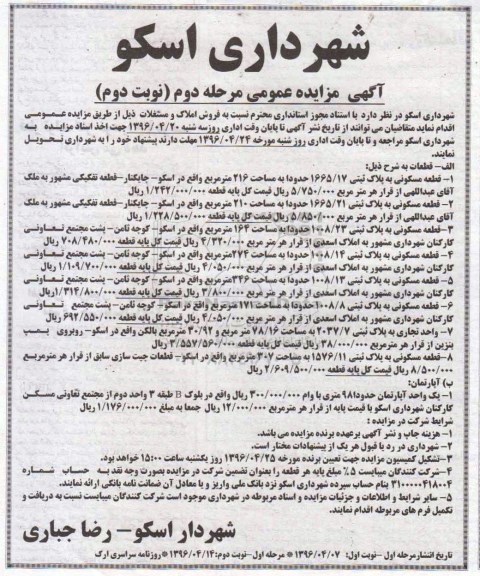 شهرداری اسکو
آگهی مزایده عمومی مرحله دوم (نوبت دوم)
شهرداری اسکو در نظر دارد با استناد مجوز استانداری محترم نسبت به فروش املاک و مستغلات ذیل از طریق مزایده عمومی
اقدام نماید متقاضیان می توانند از تاریخ نشر آگهی تا پایان وقت اداری روزسه شنبه ۱۳۹۶/۰۴/۲۰ جهت اخذ اسناد مزایده به
شهرداری اسکو مراجعه و تا پایان وقت اداری روز شنبه مورخه ۱۳۹۶/۰۴/۲۴ مهلت دارند پیشنهاد خود را به شهرداری تحویل
نمایند.
الف- قطعات به شرح ذیل:
۱- قطعه مسکونی به پلاک ثبتی ۱۶۶۵/۱۷ حدودا به مساحت ۲۱۶ مترمربع واقع در اسکو- جایکنار-قطعه تفکیکی مشهور به ملک
آقای عبداللهی از قرار هر متر مربع ۵/۷۵۰/۰۰۰ ریال قیمت کل پایه قطعه ۱/۲۴۲/۰۰۰/۰۰۰ ریال
۲- قطعه مسکونی به پلاک ثبتی ۱۶۶۵/۲۱ حدودا به مساحت ۲۱۰ مترمربع واقع در اسکو- جایکنار-قطعه تفکیکی مشهور به ملک
آقای عبداللهی از قرار هر متر مربع ۵/۸۵۰/۰۰۰ ریال قیمت کل پایه قطعه ۱/۲۲۸/۵۰۰/۰۰۰ ریال
۳-قطعه مسکونی به پلاک ثبتی ۱۰۰۸/۲۳ حدودا به مساحت ۱۶۴ مترمربع واقع در اسکو- کوچه ثامن- پشت مجتمع تعاونی
کارکنان شهرداری مشهور به املاک اسعدی از قرار هر متر مربع ۴/۳۲۰/۰۰۰ ریال قیمت کل پایه قطعه ۷۰۸/۴۸۰/۰۰۰ ریال
۴- قطعه مسکونی به پلاک ثبتی ۱۰۰۸/۱۴ حدودا به مساحت ۲۷۴مترمربع واقع در اسکو- کوچه ثامن- پشت مجتمع تعاونی
کارکنان شهرداری مشهور به املاک اسعدی از قرار هر متر مربع ۴/۰۵۰/۰۰۰ ریال قیمت کل پایه قطعه ۱/۱۰۹/۷۰۰/۰۰۰ ریال
۵- قطعه مسکونی به پلاک ثبتی ۱۰۰۸/۱۳ حدودا به مساحت ۳۴۶مترمربع واقع در اسکو- کوچه ثامن- پشت مجتمع تعاونی
کارکنان شهرداری مشهور به املاک اسعدی از قرار هر متر مربع ۳/۸۰۰/۰۰۰ ریال قیمت کل پایه قطعه ۱/۳۱۴/۸۰۰/۰۰۰ ریال
۶- قطعه مسکونی به پلاک ثبتی ۱۰۰۸/۸ حدودا به مساحت ۱۷۱ مترمربع واقع در اسکو- کوچه ثامن- پشت مجتمع تعاونی
کارکنان شهرداری مشهور به املاک اسعدی از قرار هر متر مربع ۴/۰۵۰/۰۰۰ ریال قیمت کل پایه قطعه ۶۹۲/۵۵۰/۰۰۰ ریال
۷- واحد تجاری به پلاک ثبتی ۲۰۳۷/۷ به مساحت ۷۸/۱۶ متر مربع و ۳۰/۹۲ مترمربع بالکن واقع در اسکو- روبروی پمپ
بنزین از قرار هر متر مربع ۳۸/۰۰۰/۰۰۰ ریال قیمت کل پایه قطعه ۳/۵۵۷/۵۶۰/۰۰۰ ریال
۸-قطعه مسکونی به پلاک ثبتی ۱۵۷۶/۱۱ به مساحت ۳۰۷ مترمربع واقع در اسکو- قطعات جیت سازی سابق از قرار هر مترمربع
۸/۵۰۰/۰۰۰ ریال قیمت کل پایه قطعه ۲/۶۰۹/۵۰۰/۰۰۰ ریال
ب) آپارتمان:
۱- یک واحد آپارتمان حدودا۹۸ متری با وام ۳۰۰/۰۰۰/۰۰۰ ریال واقع در بلوک B طبقه ۳ واحد دوم از مجتمع تعاونی مسکن
کارکنان شهرداری اسکو با قیمت پایه از قرار هر مترمربع ۱۲/۰۰۰/۰۰۰ ریال جمعا به مبلغ ۱/۱۷۶/۰۰۰/۰۰۰ ریال
شرایط شرکت در مزایده :
۱- هزینه چاپ و نشر آگهی برعهده برنده مزایده می باشد.
۲- شهرداری در رد یا قبول هر یک از پیشنهادات مختار است.
۳-تشکیل کمیسیون مزایده جهت تعیین برنده مورخه ۱۳۹۶/۰۴/۲۵ روز یکشنبه ساعت ۱۵:۰۰ خواهد بود.
۴-شرکت کنندگان میبایست ۵٪ مبلغ پایه هر قطعه را بعنوان تضمین شرکت در مزایده بصورت وجه نقد به حساب شماره
۳۱۰۰۰۰۰۴۱۸۰۰۴ بنام حساب سپرده شهرداری اسکو نزد بانک ملی واریز و یا معادل آن ضمانت نامه بانکی ارائه نمایند.
۵- سایر شرایط و اطلاعات و جزئیات مزایده و اسناد مربوطه در شهرداری موجود است شرکت کنندگان میبایست نسبت به دریافت و
تکمیل فرم های مربوطه اقدام نمایند.
شهردار اسکو- رضا جباری
تاریخ انتشارمرحله اول -نوبت اول: ۱۳۹۶/۰۴/۰۷ * مرحله اول-نوبت دوم:۱۳۹۶/۰۴/۱۴ *روزنامه سراسری ارک